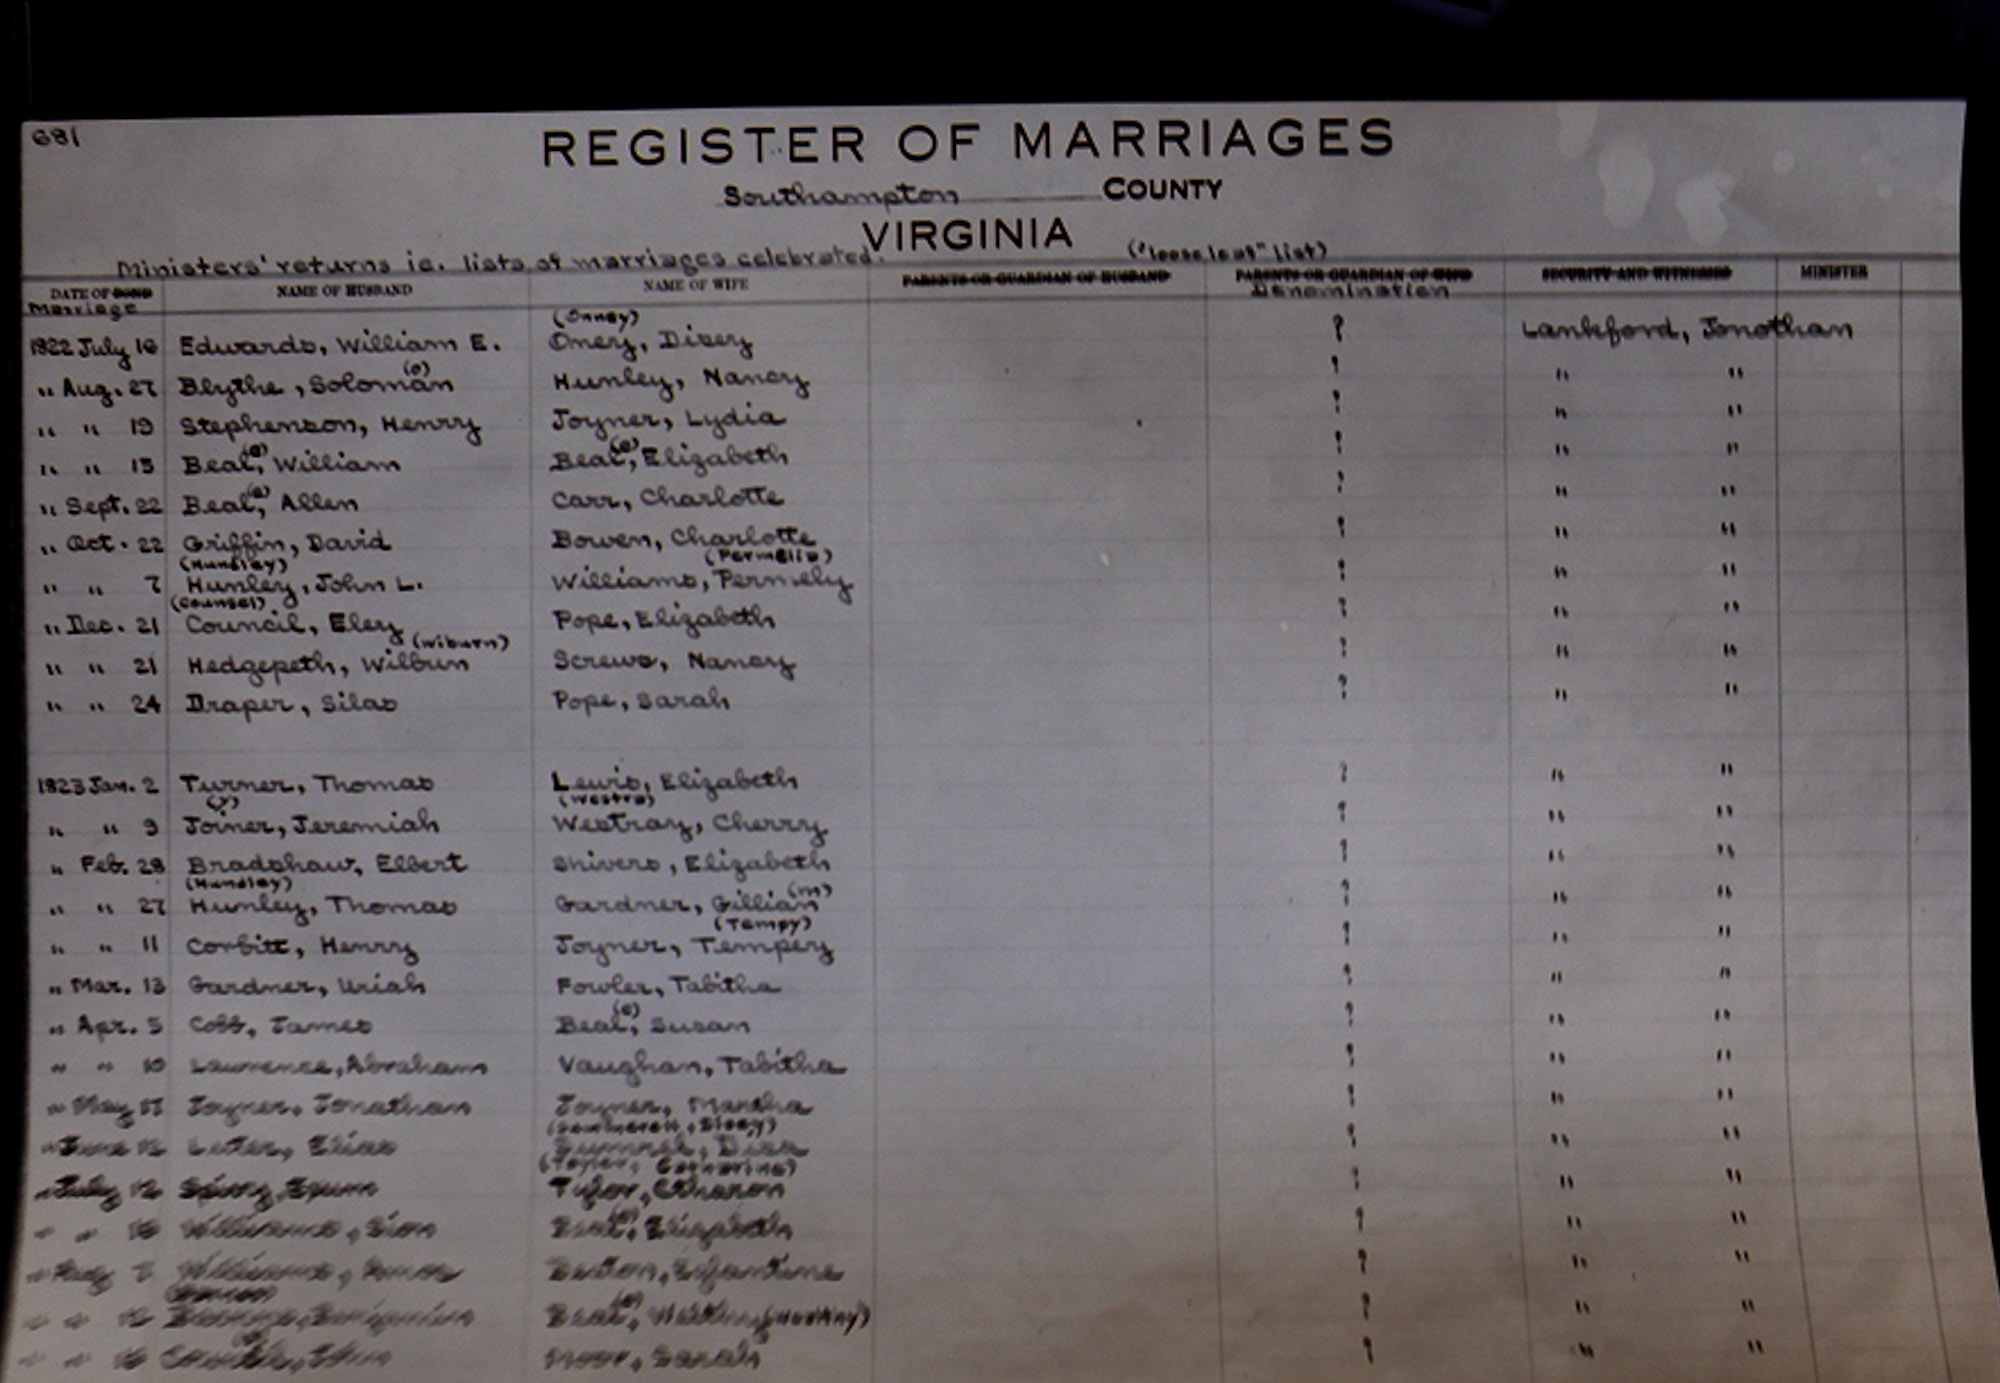 681
REGISTER OF MARRIAGES
Southampton COUNTY
VIRGINIA
Ministers' returns ie. lists of marriages celebrated. ("loose leaf" list)
DATE OF BOND NAME OF HUSBAND NAME OF WIFE PARENTS OR GUARDIAN OF HUSBAND PARENTS OR GUARDIAN OF WIFE SECURITY AND WITNESSES MINISTER
Marriage Denomination
(Onney)
1822 July 16 Edwards, William E. Omery, Disey ? Lankford, Jonothan
" Aug. 27 Blythe, Soloman (o) Hunley, Nancy ? " "
" " 19 Stephenson, Henry Joyner, Lydia ? " "
" " 15 Beal(e), William Beal(e), Elizabeth ? " "
" Sept. 22 Beal(e), Allen Carr, Charlotte ? " "
" Oct. 22 Griffin, David Bowen, Charlotte ? " "
(Hundley) (Permelia)
" " 7 Hunley, John L. Williams, Permely ? " "
(Counsel)
" Dec. 21 Council, Eley Pope, Elizabeth ? " "
(Wiburn)
" " 21 Hedgepeth, Wilbun Screws, Nancy ? " "
" " 24 Draper, Silas Pope, Sarah ? " "
1823 Jan. 2 Turner, Thomas Lewis, Elizabeth ? " "
(y) (Westra)
" " 9 Joiner, Jeremiah Westray, Cherry ? " "
" Feb. 28 Bradshaw, Elbert Shivers, Elizabeth ? " "
(Hundley) (m)
" " 27 Hunley, Thomas Gardner, Gillian ? " "
(Tempy)
" " 11 Corbitt, Henry Joyner, Tempery ? " "
" Mar. 13 Gardner, Uriah Fowler, Tabitha ? " "
" Apr. 5 Cobb, James Beal(e), Susan ? " "
" " 10 Lawrence, Abraham Vaughan, Tabitha ? " "
" May Joyner, Jonathan Joyner, Martha ? " "
" June 12 Luter, Elias ? " "
" July ? " "
" " Williams, Beal(e), Elizabeth ? " "
" Williams, ? " "
" " Beal(e), ? " "
" " Sarah ? " "